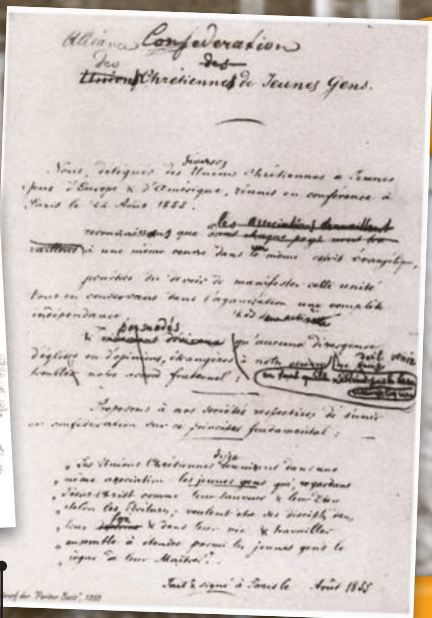 Alliance Confédération
des des
Unions Chrétiennes de Jeunes Gens.
diverses
Nous, délégués des Unions Chrétiennes de Jeunes
Gens d'Europe & d'Amérique, réunis en conférence à
Paris le 22 Août 1855.
les associations travaillent
reconnaissons que dans chaque pays
à une même œuvre dans le même esprit évangélique,
pénétrés du devoir de manifester cette unité
tout en conservant dans l'organisation une complète
indépendance
persuadés
& qu'aucune divergence
d'églises ou d'opinions, étrangères à notre doit venir
troubler notre accord fraternel ;
Proposons à nos sociétés respectives de s'unir
en confédération sur ce principe fondamental :
„ Les Unions Chrétiennes dans une
„ même association les jeunes gens qui, regardant
„ Jésus-Christ comme leur Sauveur & leur Dieu
„ selon les Écritures, veulent être ses disciples dans
„ leur foi & dans leur vie & travailler
„ ensemble à étendre parmi les jeunes gens le
„ règne de leur Maître."
Fait & signé à Paris le Août 1855
der "Pariser Basis", 1855